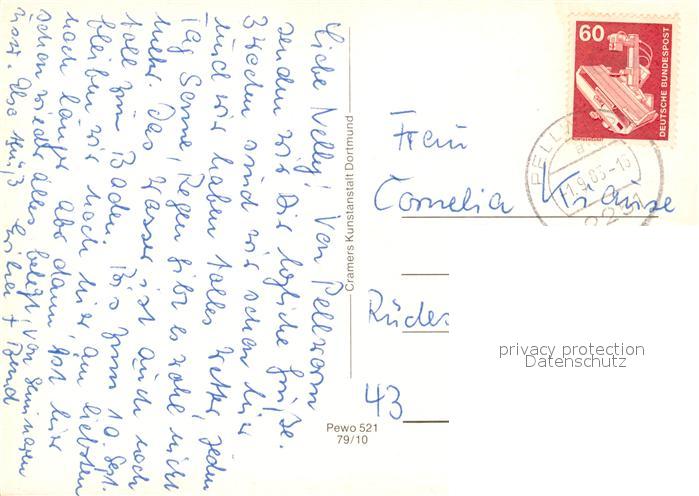 Liebe Nelly! Von Pellworm
senden wir Dir herzliche Grüße.
3 Wochen sind wir schon hier
und wir haben tolles Wetter, jeden
Tag Sonne, Regen gibt es wohl nicht
mehr. Das Wasser ist auch noch
toll zum Baden. Bis zum 10. Sept.
bleiben wir noch hier, am liebsten
noch länger aber dann ist hier
schon wieder alles belegt, von Seminaren
usw. Also tschüß +  Bernd
Cramers Kunstanstalt Dortmund
60
DEUTSCHE BUNDESPOST
PELLW
1.9.83-1
2251
Frau
Cornelia Krause
Rüdes
43
privacy protection
Datenschutz
Pewo 521
79/10